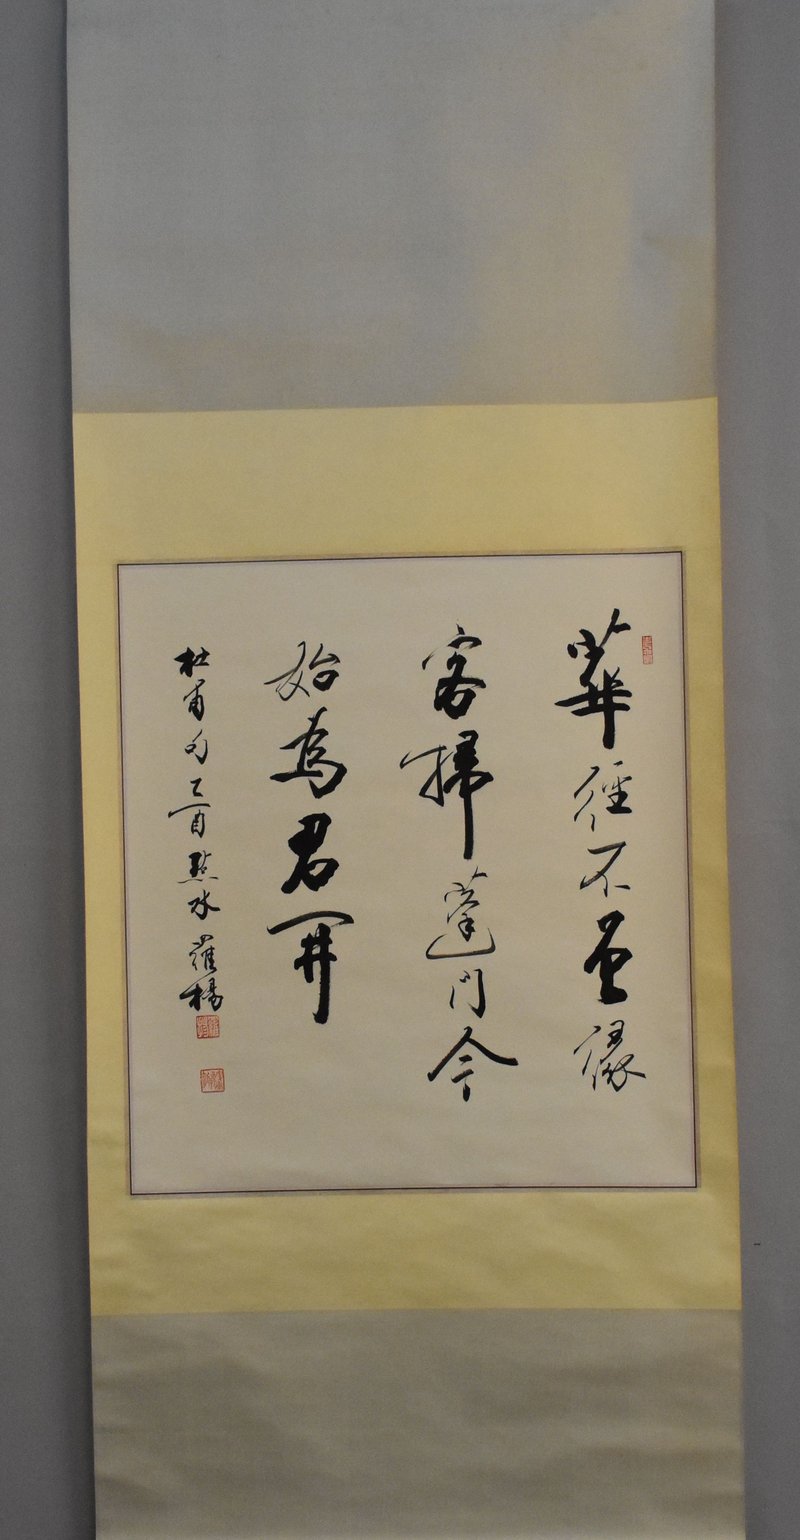 華徑不曾緣
客掃蓬門今
始為君開
杜甫句乙酉點水羅楊